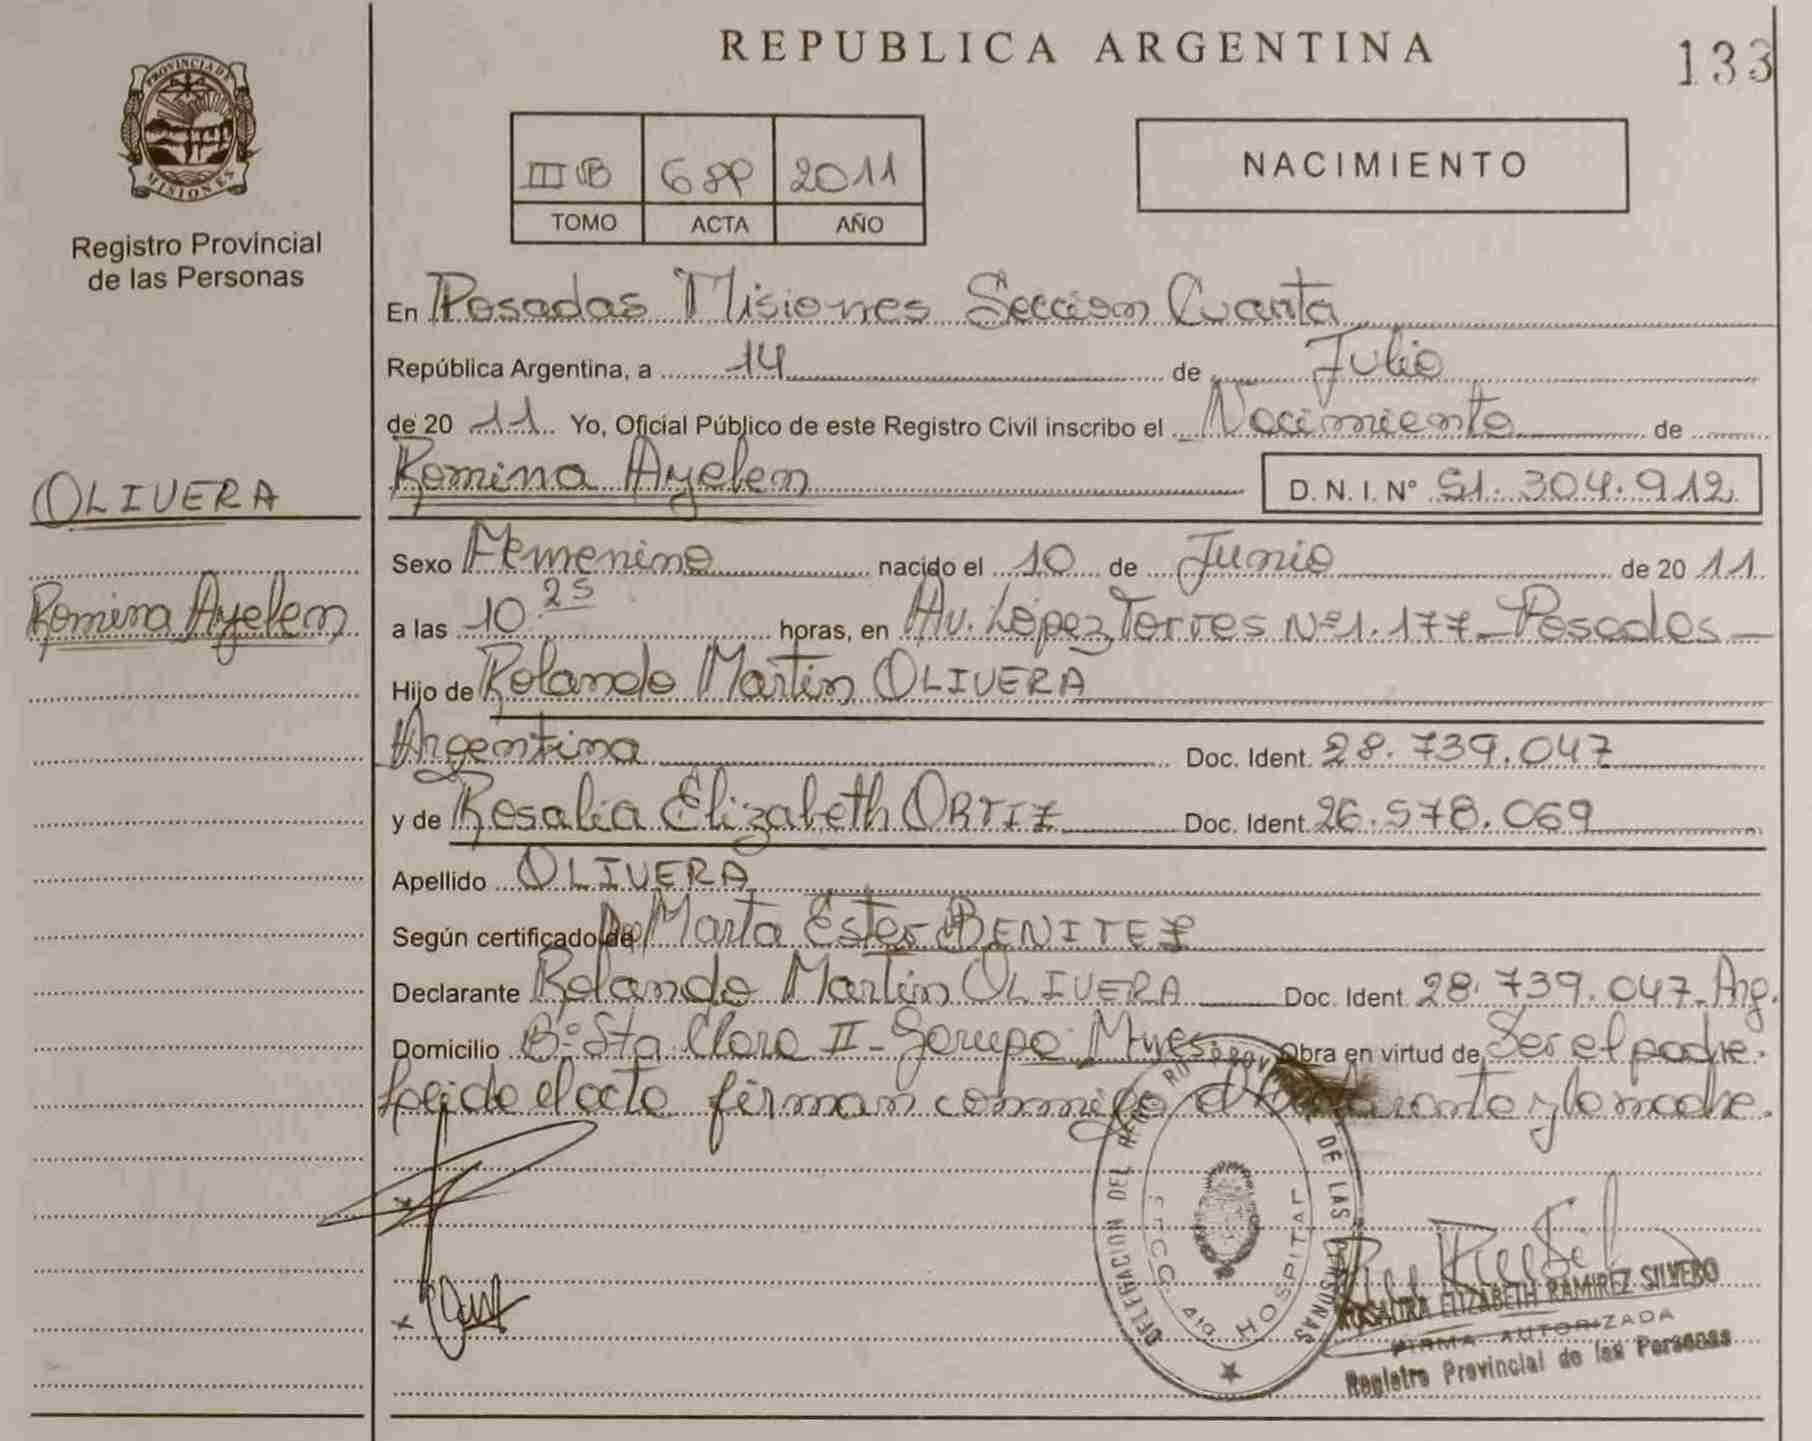 REPUBLICA ARGENTINA
133
PROVINCIA DE
MISIONES
Registro Provincial
de las Personas
III B 2011
TOMO ACTA AÑO
NACIMIENTO
En Posadas Misiones Sección Cuarta
República Argentina, a 14 de Julio
de 20 11 Yo, Oficial Público de este Registro Civil inscribo el Nacimiento de
Romina Ayelen D. N. I. Nº 51.304.912
OLIVERA
Romina Ayelen
Sexo Femenino nacido el 10 de Junio de 20 11
a las 10 25 horas, en Av. López Torres Nº 1.177 - Posadas -
Hijo de Rolando Martin OLIVERA
Argentina Doc. Ident. 28.739.047
y de Rosalia Elizabeth ORTIZ Doc. Ident. 26.578.069
Apellido OLIVERA
Según certificado de Marta Ester BENITEZ
Declarante Rolando Martin OLIVERA Doc. Ident. 28.739.047 - Arg.
Domicilio Bº Sta Clara II - Obra en virtud de Ser el padre.
Leido el acto firman conmigo el y la madre.
DELEGACION DEL REGISTRO PROVINCIAL DE LAS PERSONAS
SECC. 4ta. HOSPITAL
ROSAURA ELIZABETH RAMIREZ SILVERO
FIRMA AUTORIZADA
Registro Provincial de las Personas